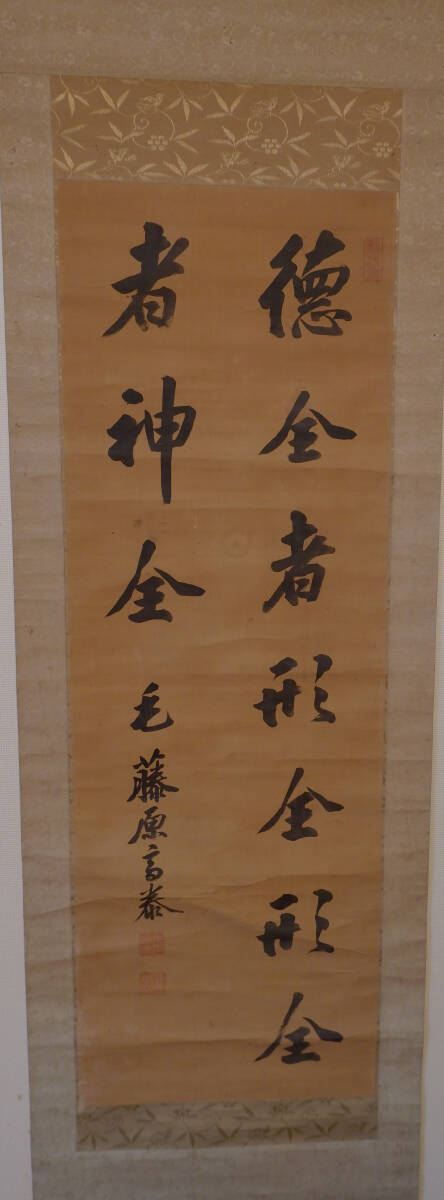 德全者形全形全
者神全
毛藤原高泰